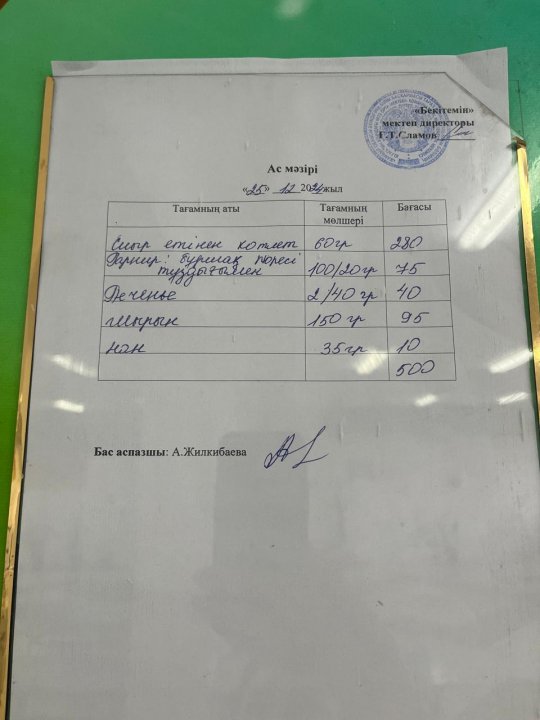 «Бекітемін»
мектеп директоры
Г.Т.Сламов
Ас мәзірі
«25» 12 2024 жыл
Тағамның аты Тағамның мөлшері Бағасы
Сиыр етінен котлет 60гр 280
Гарнир: бұршақ пюресі
тұздығымен 100/20гр 75
Печенье 2/40 гр 40
Шырын 150 гр 95
нан 35гр 10
500
Бас аспазшы: А.Жилкибаева